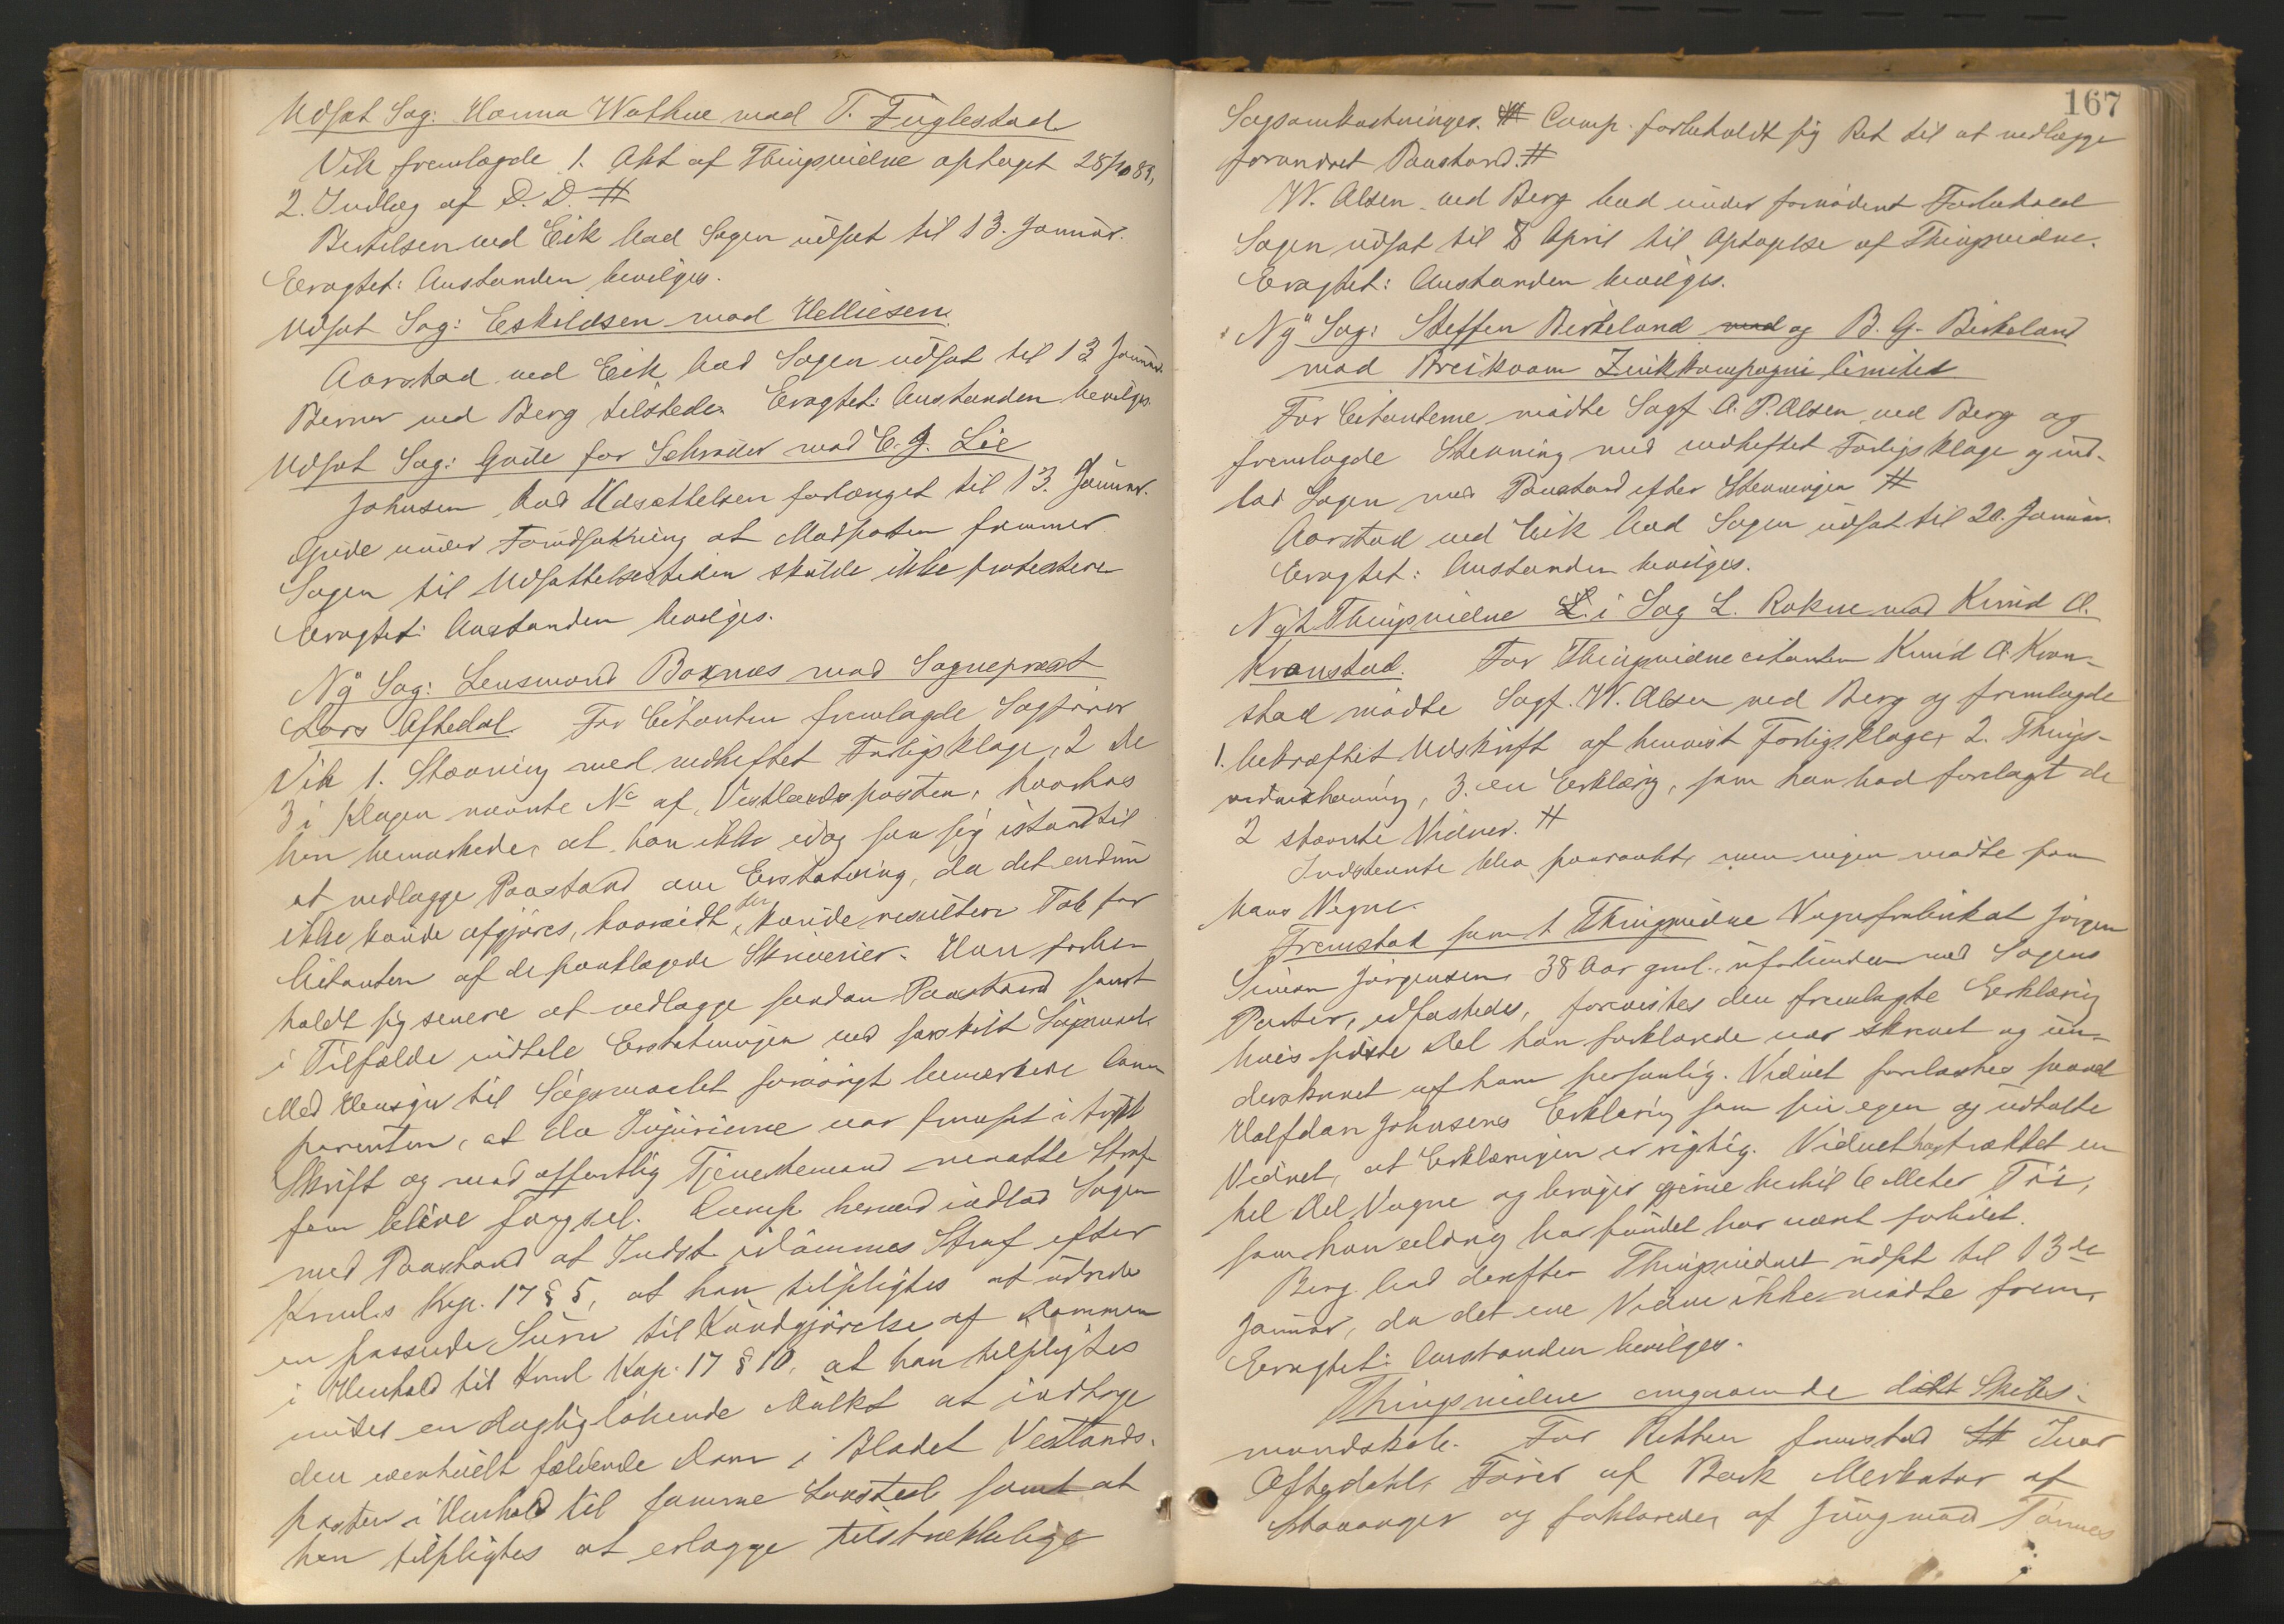 Udsat Sag: Hanna Wathne mod T. Fuglestad
Vik fremlagde 1. Akt af Thingsvidne optaget 28/10 89,
2. Indlæg af D. D. #
Bertelsen ved Eik bad Sagen udsat til 13. Januar.
Eragtet: Anstanden bevilges.
Udsat Sag: Eskildsen mod Helliesen.
Aarstad ved Eik bad Sagen udsat til 13 Januar.
Berner ved Berg tilstede. Eragtet: Anstanden bevilges.
Udsat Sag: Gude for Schrøder mod E. G. Lie
Johnsen bad Udsættelsen forlænget til 13. Januar.
Gude under Forudsætning at Modparten fremmer
Sagen til Udsættelsestiden skulde ikke protestere
Eragtet: Anstanden bevilges.
Ny Sag: Lensmand Boxnæs mod Sogneprest
Lars Oftedal. For Citanten fremlagde Sagfører
Vik 1. Stævning med vedheftet Forligsklage, 2 de
3 i Klagen nævnte No af Vestlandsposten, hvorhos
han bemærkede, at han ikke idag saa sig istand til
at nedlægge Paastand om Erstatning, da det endnu
ikke kunde afgjøres, hvorvidt der kunde resultere Tab for
Citanten af de paaklagede Skriverier. Han forbe-
holdt sig senere at nedlægge saadan Paastand samt
i Tilfælde udtale Erstatningen ved særskilt Søgsmaal.
Med Hensyn til Søgsmaalet forøvrigt bemærkede Com-
parenten, at da Injurierne var fremsat i trykt
Skrift og mod offentlig Tjenestemand maatte Straf-
fen blive Fængsel. Comp. herved indlod Sagen
med Paastand at Indst. idømmes Straf efter
Krmls Kap. 17 § 5, at han tilpligtes at udrede
en passende Sum til Kundgjørelse af Dommen
i Henhold til Krml Kap. 17 § 10, at han tilpligtes
under en dagligløbende Mulkt at indtage
den eventuelt fældende Dom i Bladet Vestlands-
posten i Henhold til samme Lovsted samt at
han tilpligtes at erlægge tilstrækkelige
167
Sagsomkostninger. # Comp. forbeholdt sig Ret til at nedlægge
forandret Paastand. #
W. Olsen ved Berg bad under fornødent Forbehold
Sagen udsat til 8 April til Optagelse af Thingsvidne.
Eragtet: Anstanden bevilges.
Ny Sag: Steffen Birkeland mod og B. G. Birkeland
mod Breikvam Zinkkompagni limited
For Citanterne mødte Sagf. O. P. Olsen ved Berg og
fremlagde Stevning med vedheftet Forligsklage og ind-
lod Sagen med Paastand efter Stevningen #
Aarstad ved Eik bad Sagen udsat til 20. Januar.
Eragtet: Anstanden bevilges.
Nyt Thingsvidne L. i Sag L. Rokne mod Knud O.
Kvanstad. For Thingsvidnecitanten Knud O. Kvan-
stad mødte Sagf. W. Olsen ved Berg og fremlagde
1. bekræftet Udskrift af henvist Forligsklage, 2. Things-
vidnestævning, 3. en Erklæring, som han bad forelagt de
2 stævnte Vidner. #
Indstevnte blev paaraabt, men ingen mødte paa
hans Vegne.
Fremstod som 1 Thingsvidne Vognfabrikat Jørgen
Simon Jørgensen, 38 Aar gml., uforbunden med Sagens
Parter, edfæstedes, forevistes den fremlagte Erklæring
hvis første Del han forklarede var skrevet og un-
derskrevet af ham personlig. Vidnet forelæstes
Halfdan Johnsens Erklæring som sin egen og udtalte
Vidnet, at Erklæringen er rigtig. Vidnet har trækket en
hel Del Vogne og bruger gjerne hertil 6 Meter Tøi,
som han aldrig har fundet har været forlidet.
Berg bad derefter Thingsvidnet udsat til 13de
Januar, da det ene Vidne ikke mødte frem.
Eragtet: Anstanden bevilges.
Thingsvidne angaaende dødt Skibs-
mandskab. For Retten fremstod Ivar
Oftedahl, Fører af Bark Merkator af
Stavanger og forklarede, at Jungmand Tønnes